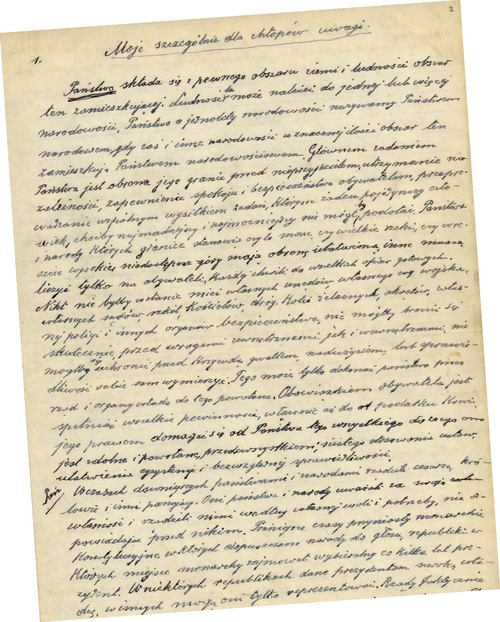 1.
2
Moje szczególnie dla chłopów uwagi.
Państwo składa się z pewnego obszaru ziemi i ludności obszar
ten zamieszkującej. Ludność ta może należeć do jednej lub więcej
narodowości. Państwo o jednolitej narodowości nazywamy Państwem
narodowem, gdy zaś i inne narodowości w znacznej ilości obszar ten
zamieszkują, Państwem narodowościowem. Głównem zadaniem
Państwa jest obrona jego granic przed nieprzyjacielem, utrzymanie nie-
zależności, zapewnienie spokoju i bezpieczeństwa obywatelom, przepro-
wadzanie wspólnym wysiłkiem zadań, którym żaden pojedynczy czło-
wiek, choćby najmądrzejszy i najmocniejszy nie mógłby podołać. Państwa
i narody których granice stanowią czy to morze, czy wielkie rzeki, czy wre-
szcie wysokie, niedostępne góry mają obronę ułatwioną, inne muszą
liczyć tylko na obywateli, każdej chwili do wszelkich ofiar gotowych.
Nikt nie byłby w stanie mieć własnych urzędów, własnego wojska,
własnych sądów, szkół, kościołów, dróg, kolei żelaznych, okrętów, włas-
nej policji i innych organów bezpieczeństwa, nie mógłby bronić się
skutecznie przed wrogami zewnętrznemi jak i wewnętrznemi, nie
mógłby się uchronić przed krzywdą, gwałtem, nadużyciem, lub sprawie-
dliwości sobie sam wymierzyć. Tego może tylko dokonać państwo przez
rząd i organy władzy do tego powołane. Obowiązkiem obywatela jest
spełniać wszelkie powinności, włącznie aż do podatku krwi
jego prawem domagać się od Państwa tego wszystkiego do czego ono
jest zdolne i powołane, przedewszystkiem ścisłego stosowania ustaw,
ułatwienia egzystencji i bezwzględnej sprawiedliwości.
W czasach dawniejszych państwami i narodami rządzili cesarze, kró-
lowie i inni panujący. Oni państwa i narody uważali za swoją
własność i rządzili niemi według własnej woli i potrzeby, nie od-
powiadając przed nikim. Późniejsze czasy przyniosły monarchie
konstytucyjne, w których dopuszczono narody do głosu, republiki w
których miejsce monarchy zajmował wybieralny co kilka lat pre-
zydent. W niektórych republikach dano prezydentom
w innych mogą oni tylko reprezentować. Rządy faktyczne